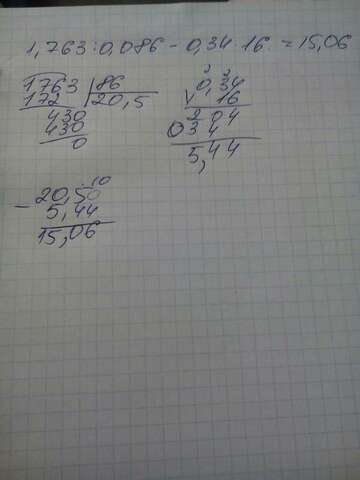 1,763:0,086-0,34 16=15,06
1763 86
172 20,5
430
430
0
2 2
0,34
16
204
034
5,44
10
- 20,50
5,44
15,06